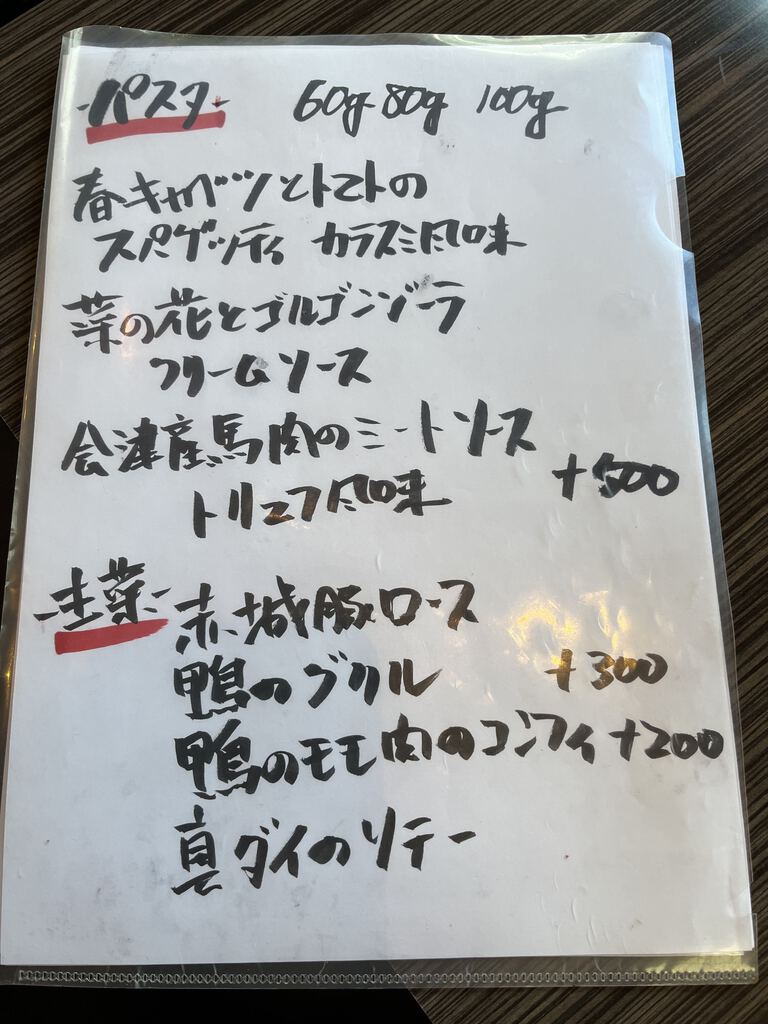 -パスタ- 60g 80g 100g
春キャベツとトマトの
スパゲッティ カラスミ風味
菜の花とゴルゴンゾーラ
クリームソース
会津産馬肉のミートソース
トリュフ風味 +500
-主菜- 赤城豚ロース
鴨のグリル +300
鴨のモモ肉のコンフィ +200
真ダイのソテー